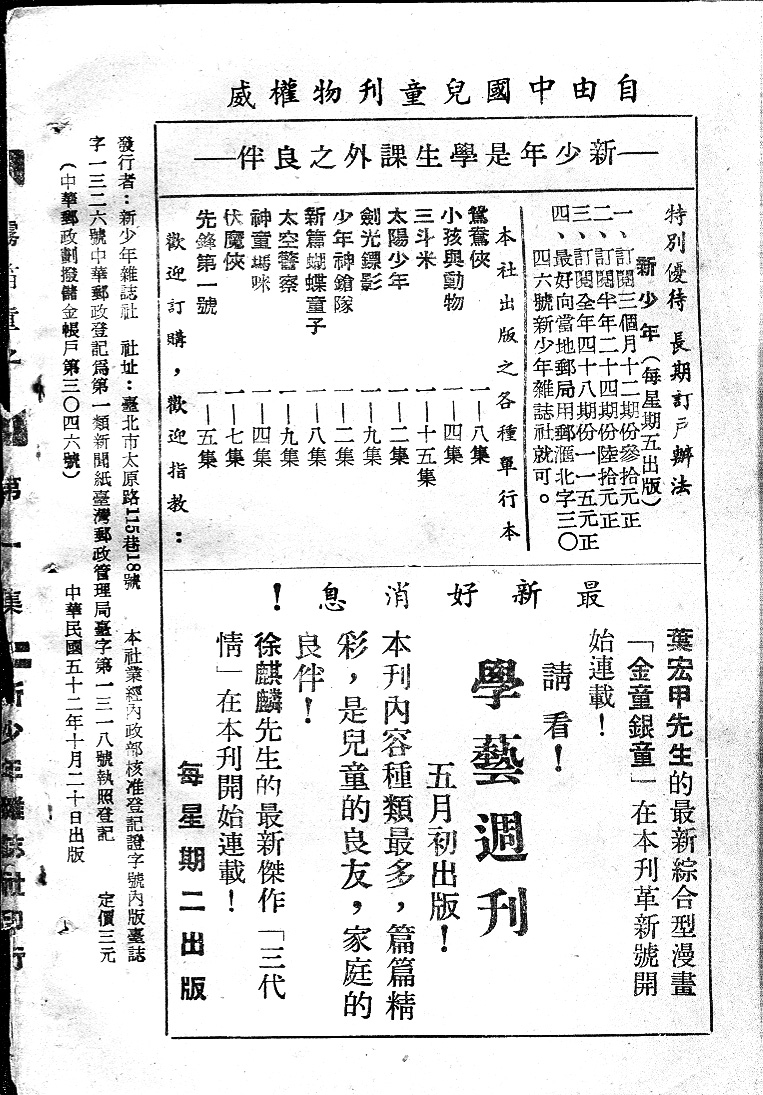 自由中國兒童刊物權威
新少年是學生課外之良伴
特別優待 長期訂戶辦法
新少年(每星期五出版)
一、訂閱三個月十二期份參拾元正
二、訂閱半年二十四期份陸拾元正
三、訂閱全年四十八期份一一五元正
四、最好向當地郵局用郵滙北字三〇
四六號新少年雜誌社就可。
本社出版之各種單行本
鴛鴦俠 一—八集
小孩與動物 一—四集
三斗米 一—十五集
太陽少年 一—二集
劍光鏢影 一—九集
少年神鎗隊 一—二集
新篇蝴蝶童子 一—八集
太空警察 一—九集
神童瑪咪 一—四集
伏魔俠 一—七集
先鋒第一號 一—五集
歡迎訂購,歡迎指教:
最新好消息!
葉宏甲先生的最新綜合型漫畫
「金童銀童」在本刊革新號開
始連載!
請看!
學藝週刊
五月初出版!
本刊內容種類最多,篇篇精
彩,是兒童的良友,家庭的
良伴!
徐麒麟先生的最新傑作「三代
情」在本刊開始連載!
每星期二出版
發行者:新少年雜誌社 社址:臺北市太原路115巷18號 本社業經內政部核准登記證字號內版臺誌
字一三二六號中華郵政登記爲第一類新聞紙臺灣郵政管理局臺字第一三一八號執照登記 定價三元
(中華郵政劃撥儲金帳戶第三〇四六號) 中華民國五十二年十月二十日出版
第一集 新少年雜誌社印行